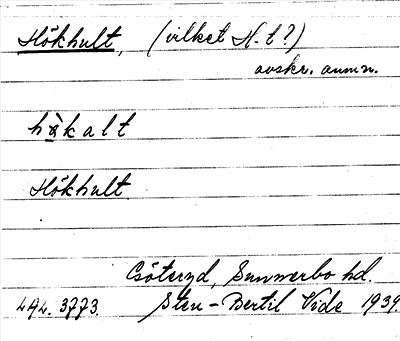 Hökhult, (vilket H-t?)
avskr. anm.
hökalt
Hökhult.
Sunnerbo hd.
444. 3773. Sten-Bertil Vide 1939.